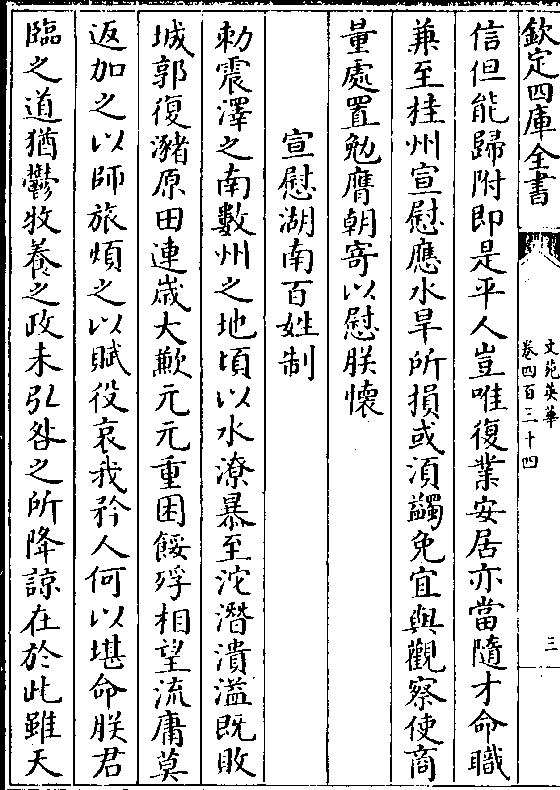 欽定四庫全書
文苑英華
卷四百三十四
三
信但能歸附即是平人豈唯復業安居亦當隨才命職
兼至桂州宣慰應水旱所損或須蠲免宜與觀察使商
量處置勉膺朝寄以慰朕懷
宣慰湖南百姓制
勅震澤之南數州之地頃以水潦暴至沱潛潰溢既敗
城郭復瀦原田連歲大歉元元重困餒殍相望流庸莫
返加之以師旅煩之以賦役哀我矜人何以堪命朕君
臨之道猶鬱牧養之政未弘咎之所降諒在於此雖天